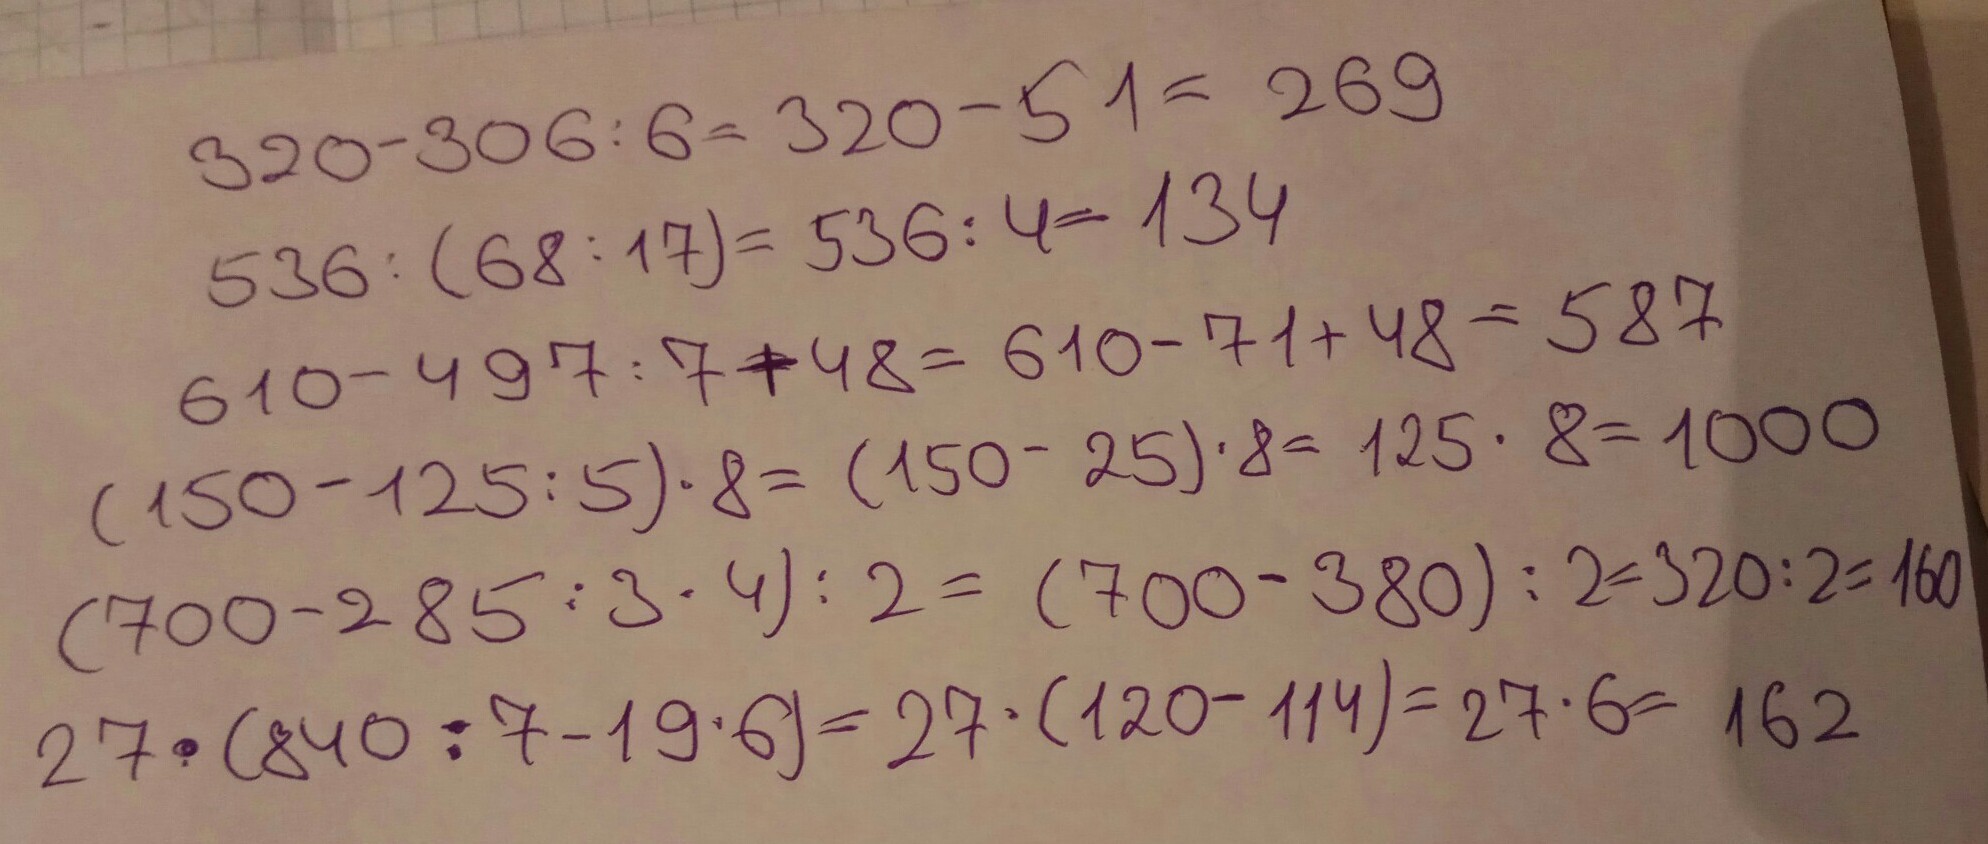 320-306:6=320-51=269
536:(68:17)=536:4=134
610-497:7+48=610-71+48=587
(150-125:5)·8=(150-25)·8=125·8=1000
(700-285:3·4):2=(700-380):2=320:2=160
27·(840:7-19·6)=27·(120-114)=27·6=162